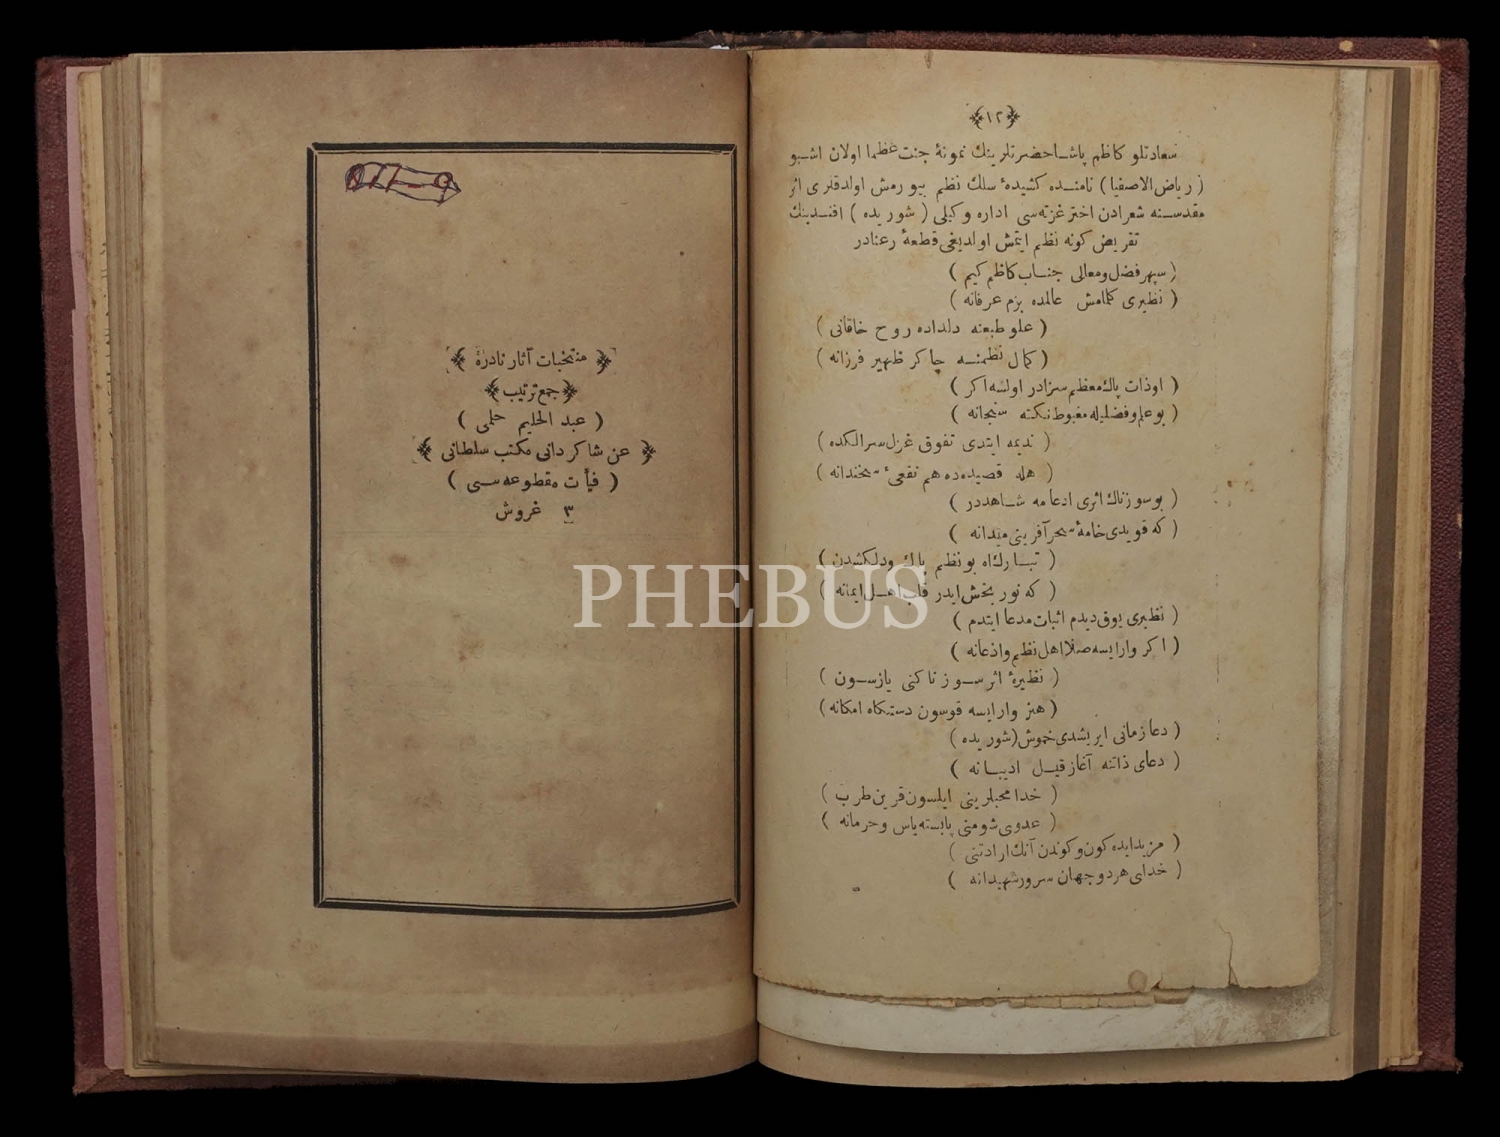 ﴿١٢﴾
سعادتلو كاظم پاشا حضرتلرينك نمونهٔ جنت عظما اولان اشبو
(رياض الاصفيا) نامنده كشيدهٔ سلك نظم بيورمش اولدقلری اثر
مقدسنه شعرادن اختر غزته‌سی اداره وكيلی (شوريده) افندينك
تقريض كونه نظم ايتمش اولديغی قطعهٔ رعنادر
(سپهر فضل ومعالی جناب كاظم كيم)
(نظيری كلمامش عالمده بزم عرفانه)
(علو طبعنه دلداده روح خاقانی)
(كمال نظمنه چاكر ظهير فرزانه)
(اوذات پاك معظم سزادر اولسه اكر)
(بو علم وفضليله مغبوط نكته سنجانه)
(نديمه ايتدی تفوق غزل سرالكده)
(هله قصيده‌ده هم نفعیٔ سخندانه)
(بوسوزناك اثری ادعامه شاهددر)
(كه قويدی خامهٔ سحر آفرينی ميدانه)
(تبارك اه بو نظم پاك ودلكشدن)
(كه نور بخش ايدر قلب اهل ايمانه)
(نظيری يوق ديدم اثبات مدعا ايتدم)
(اكر وارايسه صلا اهل نظم واذعانه)
(نظيرهٔ اثر سوزناكنی يازسون)
(هنر وارايسه قوسون دستكاه امكانه)
(دعا زمانی ايريشدی خموش (شوريده)
(دعای ذاتنه آغاز قيل اديبانه)
(خدا محبلرينی ايلسون قرين طرب)
(عدوی شومنی پابسته ياس وحرمانه)
(مزيد ايده كون وكوندن آنك ارادتنی)
(خدای هر دو جهان سرور شهيدانه)
﴿منتخبات آثار نادره﴾
﴿جمع ترتيب﴾
(عبد الحليم حلمی)
﴿عن شاكردانی مكتب سلطانی﴾
(فيأت مقطوعه‌سی)
٣ غروش
PHEBUS